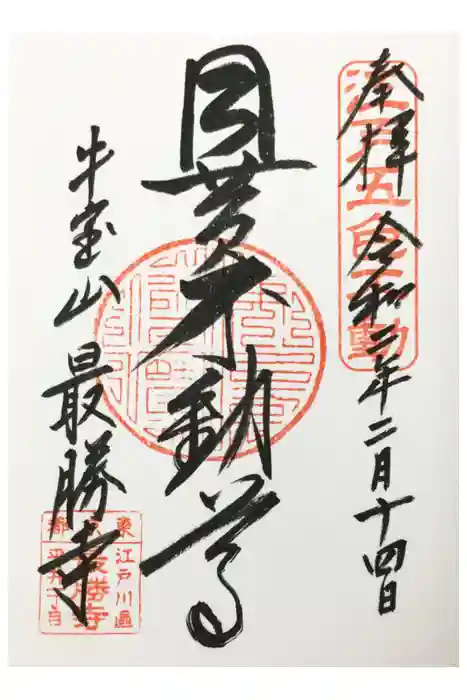 奉拝 令和三年二月十四日
江戸五色不動
目黄不動尊
牛宝山 最勝寺
東京都
江戸川區
最勝寺